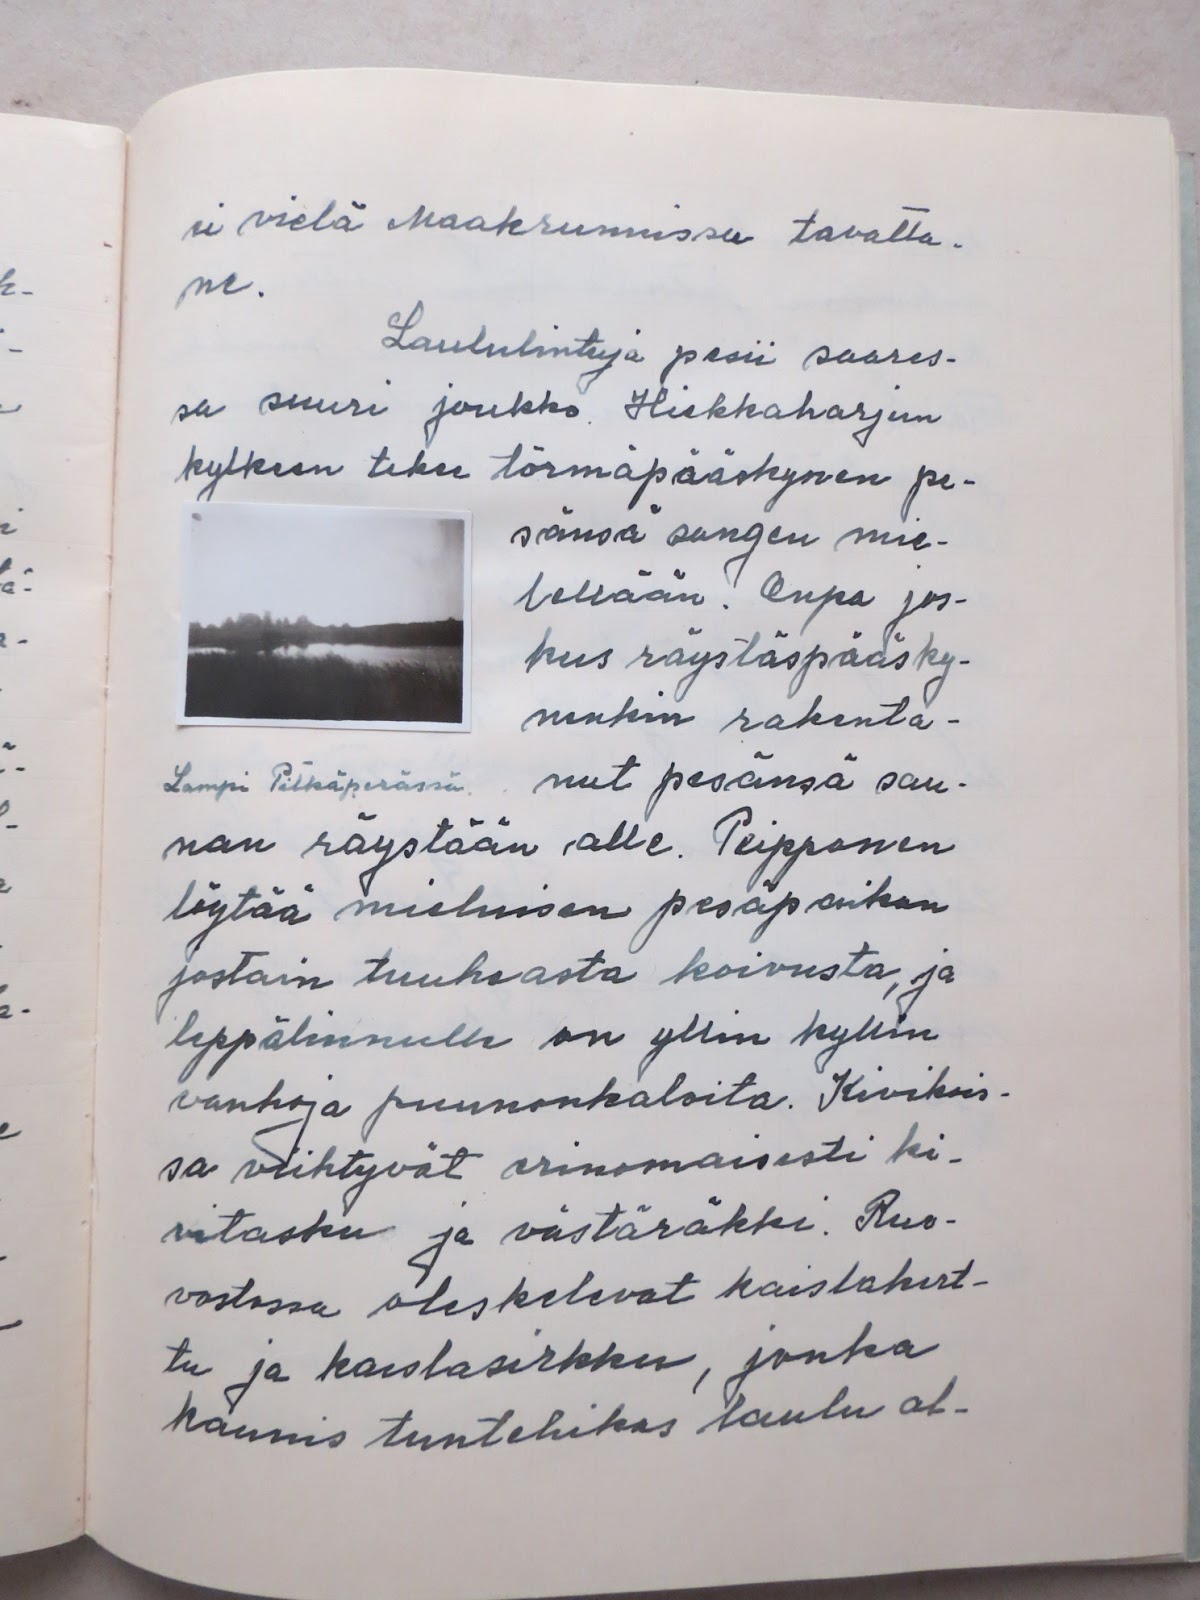 ei vielä Maakrunnissa tavatta-
ne.
Laululintuja pesii saares-
sa suuri joukko. Hiekkaharjun
kylkeen tekee törmäpääskynen pe-
sänsä sangen mie-
lellään. Onpa jos-
kus räystäspääsky-
nenkin rakenta-
nut pesänsä sau-
Lampi Pitkäperässä.
nan räystään alle. Peipponen
löytää mieluisen pesäpaikan
jostain tuuheasta koivusta, ja
leppälinnulle on yllin kyllin
vanhoja puunonkaloita. Kivikois-
sa viihtyvät erinomaisesti ki-
vitasku ja västäräkki. Ruo-
vostossa oleskelevat kaislakert-
tu ja kaislasirkku, jonka
kaunis tuntehikas laulu al-